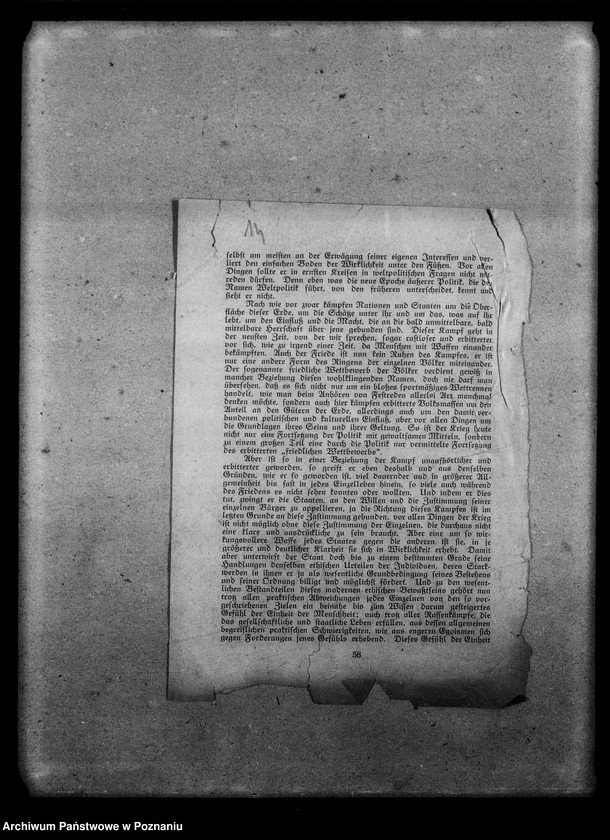 14
selbst am meisten an der Erwägung seiner eigenen Interessen und ver-
liert den einfachen Boden der Wirklichkeit unter den Füßen. Vor allen
Dingen sollte er in ernsten Kreisen in weltpolitischen Fragen nicht
reden dürfen. Denn eben was die neue Epoche äußerer Politik, die
Namen Weltpolitik führt, von den früheren unterscheidet, kennt und
sieht er nicht.
Nach wie vor zwar kämpfen Nationen und Staaten um die Ober-
fläche dieser Erde, um die Schätze unter ihr und um das, was auf ihr
lebt, um den Einfluß und die Macht, die an die bald unmittelbare, bald
mittelbare Herrschaft über jene gebunden sind. Dieser Kampf geht in
der neusten Zeit, von der wir sprechen, sogar rastloser und erbitterter
vor sich, wie zu irgend einer Zeit, da Menschen mit Waffen einander
bekämpften. Auch der Friede ist nun kein Ruhen des Kampfes, er ist
nur eine andere Form des Ringens der einzelnen Völker miteinander.
Der sogenannte friedliche Wettbewerb der Völker verdient gewiß in
mancher Beziehung diesen wohlklingenden Namen, doch nie darf man
übersehen, daß es sich nicht nur um ein bloßes sportmäßiges Wettrennen
handelt, wie man beim Anhören von Festreden allerlei Art manchmal
denken möchte, sondern auch hier kämpfen erbitterte Volksmassen um den
Anteil an den Gütern der Erde, allerdings auch um den damit ver-
bundenen politischen und kulturellen Einfluß, aber vor allen Dingen um
die Grundlagen ihres Seins und ihrer Geltung. So ist der Krieg heute
nicht nur eine Fortsetzung der Politik mit gewaltsamen Mitteln, sondern
zu einem großen Teil eine durch die Politik nur vermittelte Fortsetzung
des erbitterten „friedlichen Wettbewerbs“.
Aber ist so in einer Beziehung der Kampf unaufhörlicher und
erbitterter geworden, so greift er eben deshalb und aus denselben
Gründen, wie er so geworden ist, viel dauernder und in größerer All-
gemeinheit bis fast in jedes Einzelleben hinein, so viele auch während
des Friedens es nicht sehen konnten oder wollten. Und indem er dies
tut, zwingt er die Staaten, an den Willen und die Zustimmung seiner
einzelnen Bürger zu appellieren, ja die Richtung dieses Kampfes ist im
letzten Grunde an diese Zustimmung gebunden, vor allen Dingen der Krieg
ist nicht möglich ohne diese Zustimmung der Einzelnen, die durchaus nicht
eine klare und ausdrückliche zu sein braucht. Aber eine um so wir-
kungsvollere Waffe jedes Staates gegen die anderen ist sie, in je
größerer und deutlicher Klarheit sie sich in Wirklichkeit erhebt. Damit
aber unterwirft der Staat doch bis zu einem bestimmten Grade seine
Handlungen denselben ethischen Urteilen der Individuen, deren Stark-
werden in ihnen er ja als wesentliche Grundbedingung seines Bestehens
und seiner Ordnung billigt und möglichst fördert. Und zu den wesent-
lichen Bestandteilen dieses modernen ethischen Bewußtseins gehört nun
trotz allen praktischen Abweichungen jedes Einzelnen von den so vor-
geschriebenen Zielen ein beinahe bis zum Wissen darum gesteigertes
Gefühl der Einheit der Menschheit; auch trotz aller Rassenkämpfe, die
das gesellschaftliche und staatliche Leben erfüllen, aus dessen allgemeinen
begreiflichen praktischen Schwierigkeiten, wie aus engeren Egoismen sich
gegen Forderungen jenes Gefühls erhebend. Dieses Gefühl der Einheit
58
Archiwum Państwowe w Poznaniu